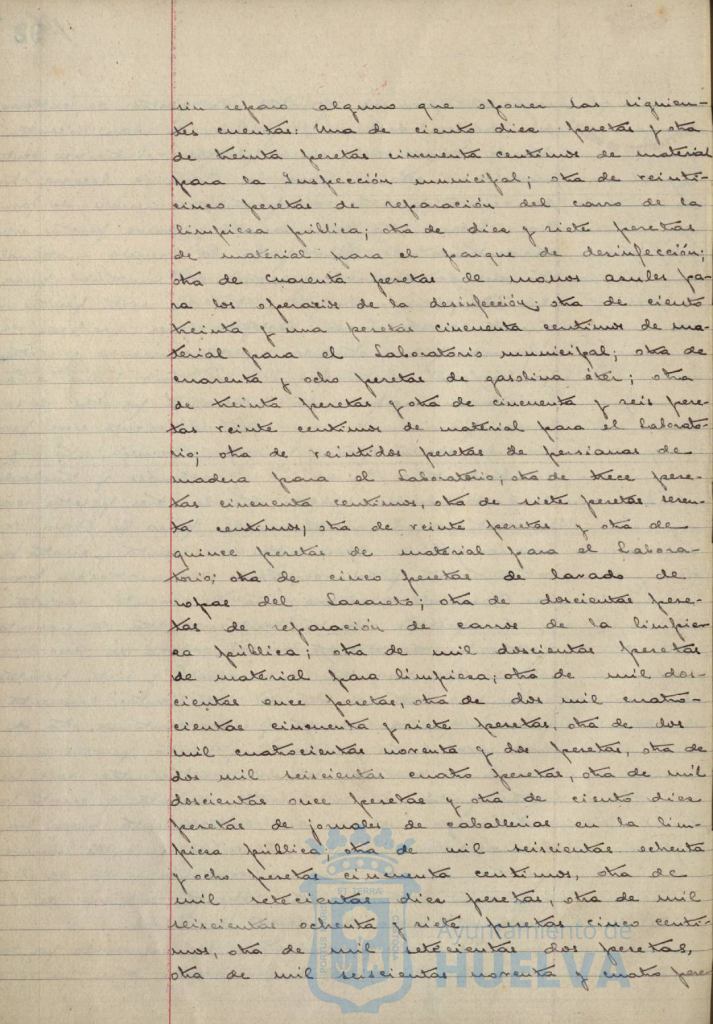 sin reparo alguno que oponer las siguien-
tes cuentas: Una de ciento diez pesetas y otra
de treinta pesetas cincuenta centimos de material
para la Inspección municipal; otra de veinti-
cinco pesetas de reparación del carro de la
limpieza pública; otra de diez y siete pesetas
de material para el parque de desinfección;
otra de cuarenta pesetas de monos azules pa-
ra los operarios de la desinfección; otra de ciento
treinta y una pesetas cincuenta centimos de ma-
terial para el Laboratorio municipal; otra de
cuarenta y ocho pesetas de gasolina éter; otra
de treinta pesetas y otra de cincuenta y seis pese-
tas veinte centimos de material para el Laborato-
rio; otra de veintidos pesetas de persianas de
madera para el Laboratorio, otra de trece pese-
tas cincuenta centimos, otra de siete pesetas sesen-
ta centimos, otra de veinte pesetas y otra de
quince pesetas de material para el Labora-
torio; otra de cinco pesetas de lavado de
ropas del Lazareto; otra de doscientas pese-
tas de reparación de carros de la limpie-
za pública; otra de mil doscientas pesetas
de material para limpieza; otra de mil dos-
cientas once pesetas, otra de dos mil cuatro-
cientas cincuenta y siete pesetas, otra de dos
mil cuatrocientas noventa y dos pesetas, otra de
dos mil seiscientas cuatro pesetas, otra de mil
doscientas once pesetas y otra de ciento diez
pesetas de jornales de caballerias en la lim-
pieza pública; otra de mil seiscientas ochenta
y ocho pesetas cincuenta centimos, otra de
mil setecientas diez pesetas, otra de mil
seiscientas ochenta y siete pesetas cinco centi-
mos, otra de mil setecientas dos pesetas,
otra de mil seiscientas noventa y cuatro pese-
Ayuntamiento de
HUELVA